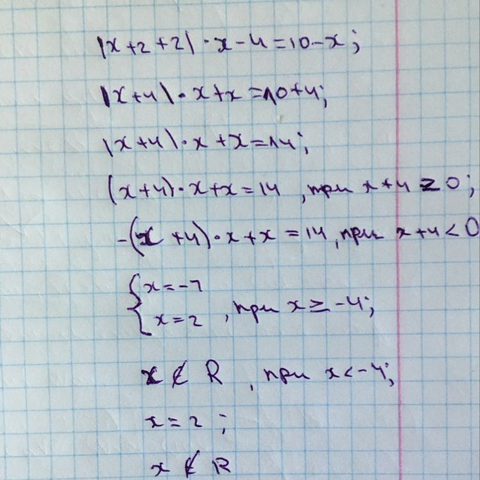 |x+2+2|·x-4=10-x;
|x+4|·x+x=10+4;
|x+4|·x+x=14;
(x+4)·x+x=14, при x+4≥0;
-(x+4)·x+x=14, при x+4<0
{x=-7
x=2, при x≥-4;
x∉R, при x<-4;
x=2;
x∉R